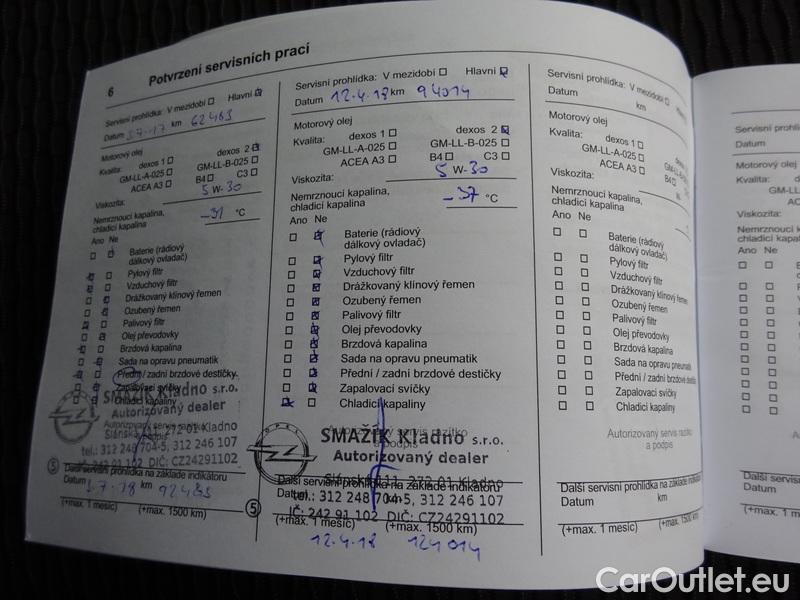 6 Potvrzení servisních prací
Servisní prohlídka: V mezidobí Hlavní
Datum 3.7.17 km 62483
Motorový olej
Kvalita: dexos 1 dexos 2
GM-LL-A-025 GM-LL-B-025
ACEA A3 B4 C3
Viskozita: 5 W-30
Nemrznoucí kapalina,
chladicí kapalina -31 °C
Ano Ne
Baterie (rádiový
dálkový ovladač)
Pylový filtr
Vzduchový filtr
Drážkovaný klínový řemen
Ozubený řemen
Palivový filtr
Olej převodovky
Brzdová kapalina
Sada na opravu pneumatik
Přední / zadní brzdové destičky
Zapalovací svíčky
Chladicí kapaliny
SMAZÍK Kladno s.r.o.
Autorizovaný dealer
Autorizovaný servis razítko
272 01 Kladno
tel.: 312 248 704-5, 312 246 107
312 242 91 102 DIČ: CZ24291102
5 Další servisní prohlídka na základě indikátoru
Datum 3.7.18 km 92483
(+max. 1 měsíc) (+max. 1500 km)
Servisní prohlídka: V mezidobí Hlavní
Datum 12.4.18 km 94014
Motorový olej
Kvalita: dexos 1 dexos 2
GM-LL-A-025 GM-LL-B-025
ACEA A3 B4 C3
Viskozita: 5 W-30
Nemrznoucí kapalina,
chladicí kapalina -37 °C
Ano Ne
Baterie (rádiový
dálkový ovladač)
Pylový filtr
Vzduchový filtr
Drážkovaný klínový řemen
Ozubený řemen
Palivový filtr
Olej převodovky
Brzdová kapalina
Sada na opravu pneumatik
Přední / zadní brzdové destičky
Zapalovací svíčky
Chladicí kapaliny
Autorizovaný servis razítko
a podpis
OPEL
SMAZÍK Kladno s.r.o.
Autorizovaný dealer
272 01 Kladno
Další servisní prohlídka na základě indikátoru
Datum km
tel.: 312 248 704-5, 312 246 107
IČ: 242 91 102 DIČ: CZ24291102
5 (+max. 1 měsíc) (+max. 1500 km)
12.4.18 124014
Servisní prohlídka: V mezidobí Hlavní
Datum km
Motorový olej
Kvalita: dexos 1
GM-LL-A-025
ACEA A3
Viskozita:
Nemrznoucí kapalina,
chladicí kapalina
Ano Ne
Baterie (rádiový
dálkový ovladač)
Pylový filtr
Vzduchový filtr
Drážkovaný klínový řemen
Ozubený řemen
Palivový filtr
Olej převodovky
Brzdová kapalina
Sada na opravu pneumatik
Přední / zadní brzdové destičky
Zapalovací svíčky
Chladicí kapaliny
Autorizovaný servis razítko
a podpis
Další servisní prohlídka na základě
Datum km
(+max. 1 měsíc) (+max. 1500 km)
Datum
Motorový olej
Kvalita:
Viskozita:
Ano Ne
CarOutlet.eu